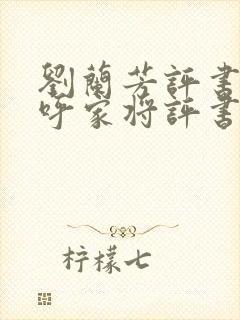 劉蘭芳評書
呼家將評書
柠檬七